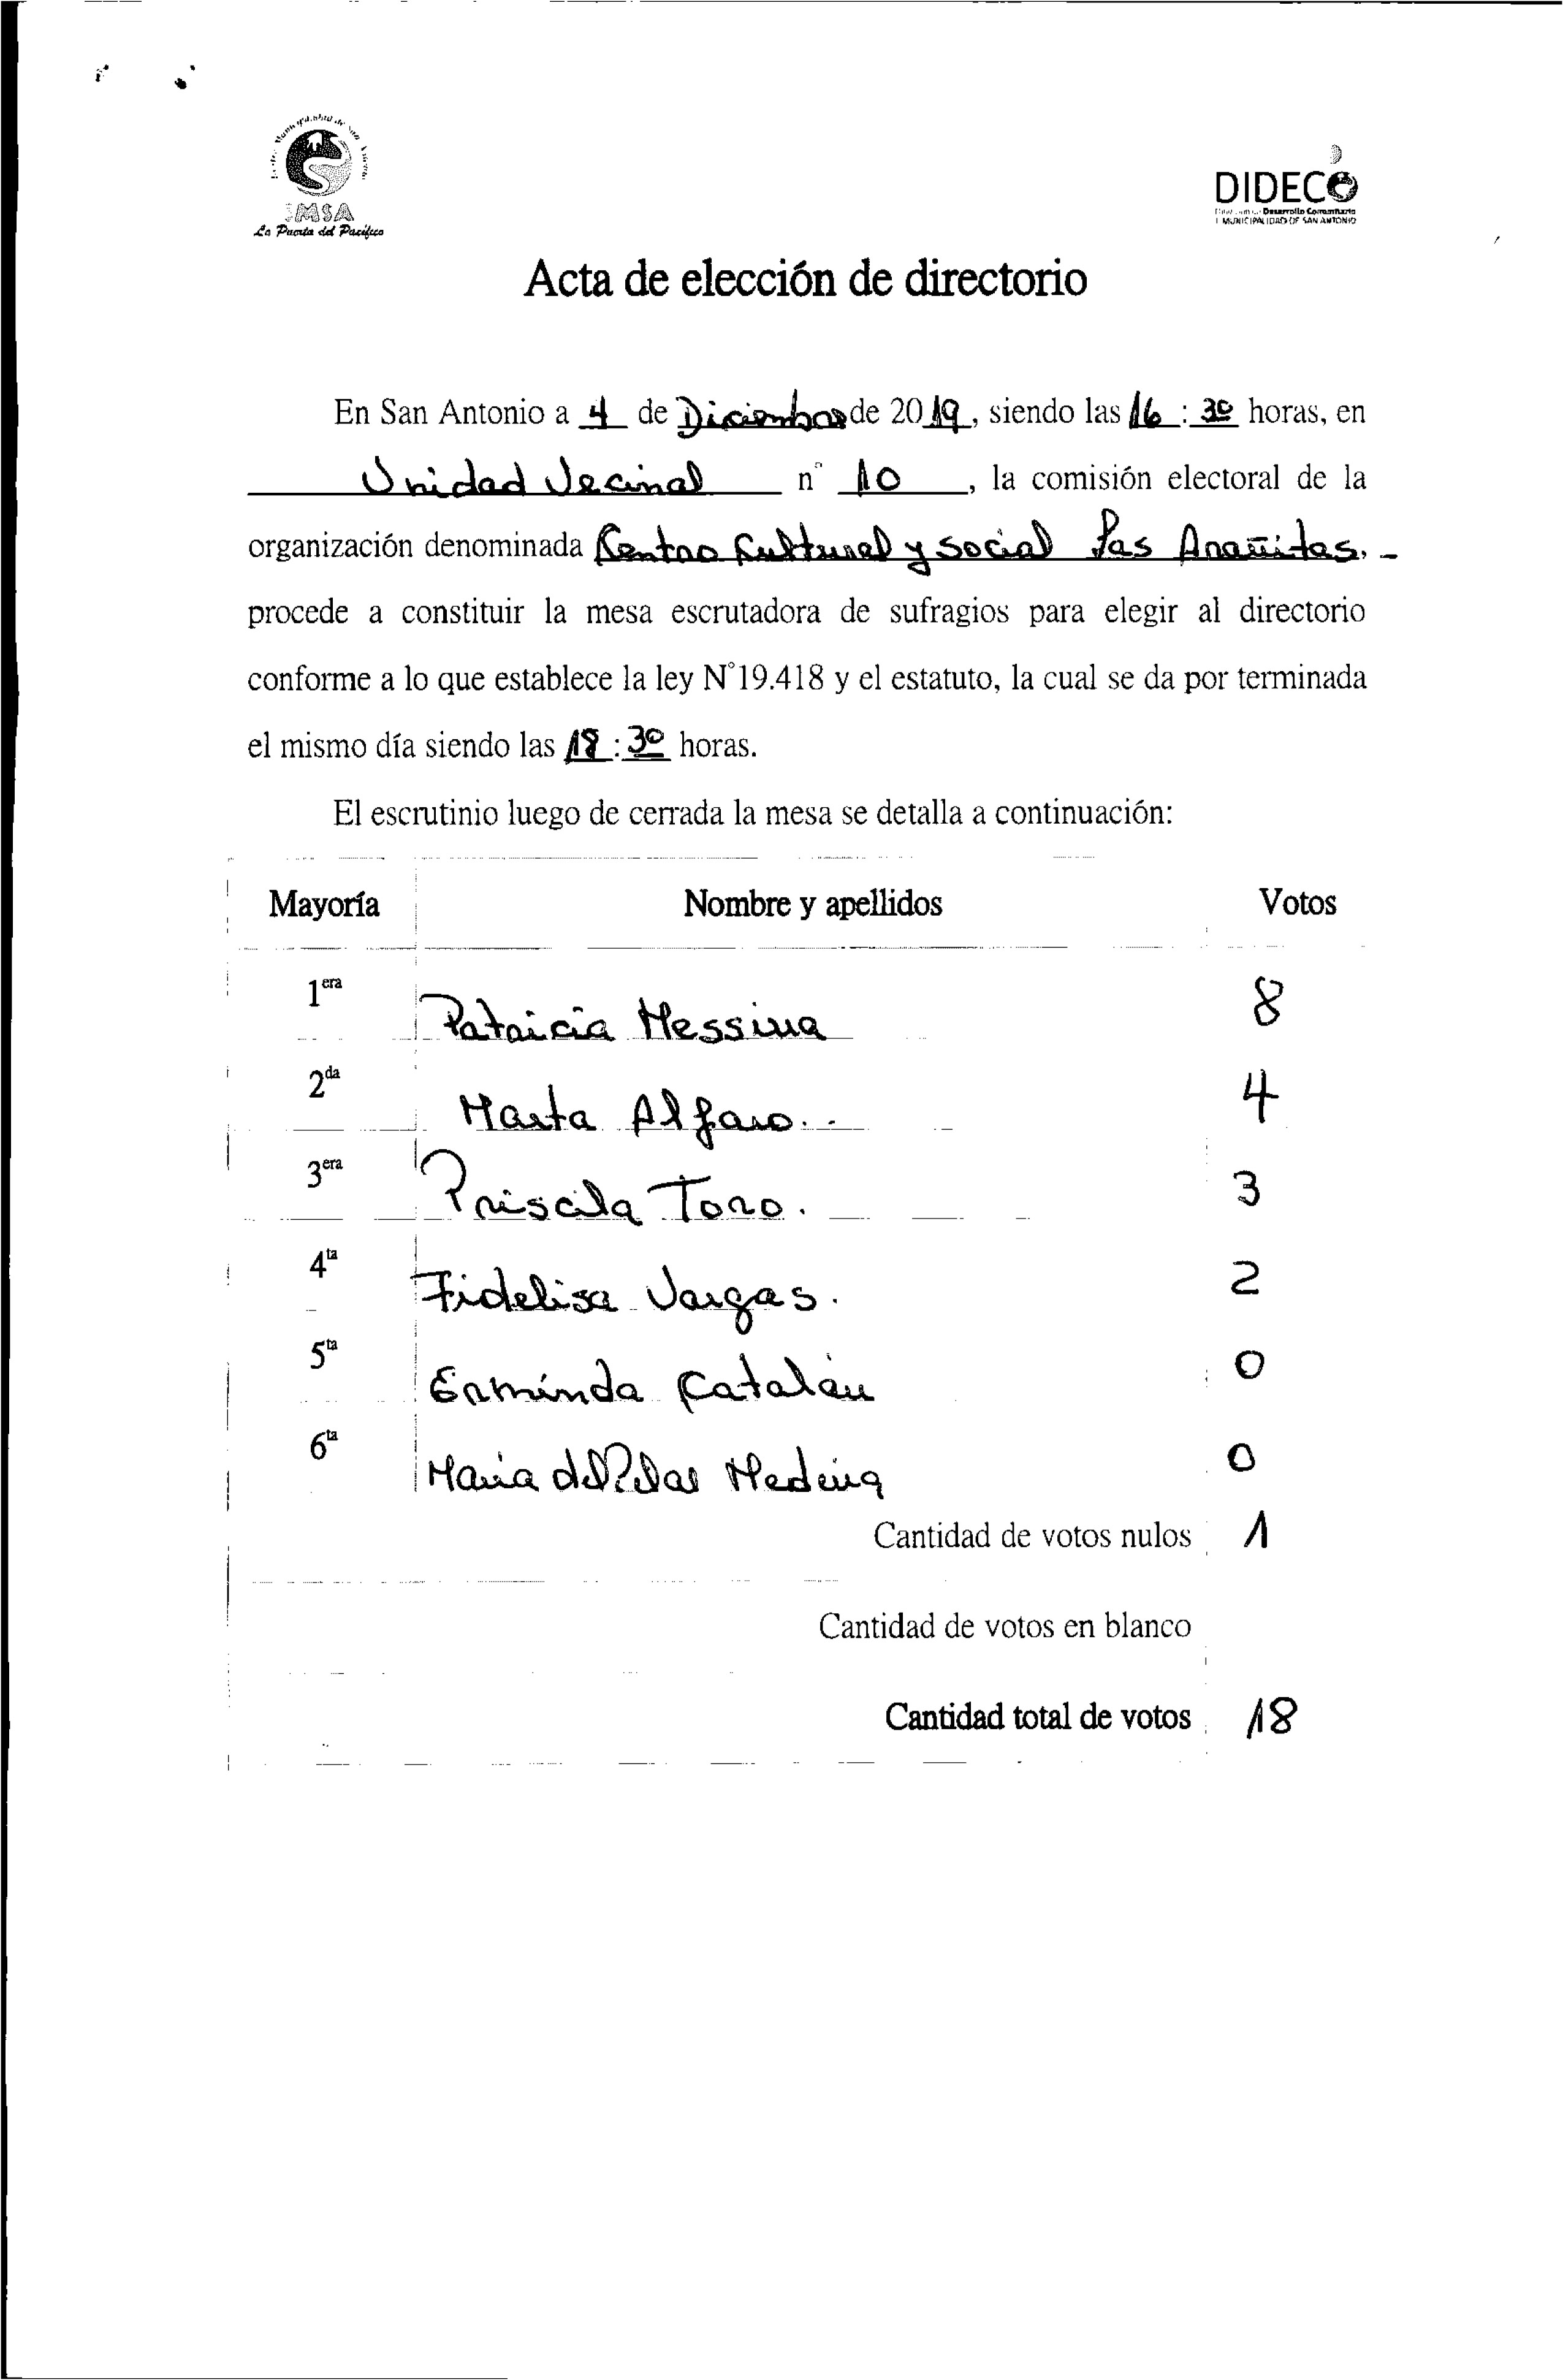 Municipalidad de San Antonio
IMSA
La Puerta del Pacífico
DIDECO
Desarrollo Comunitario
I MUNICIPALIDAD DE SAN ANTONIO
Acta de elección de directorio
En San Antonio a 4 de Diciembre de 2019, siendo las 16 : 30 horas, en
Unidad Vecinal n° 10, la comisión electoral de la
organización denominada Centro Cultural y Social Las Arañitas. -
procede a constituir la mesa escrutadora de sufragios para elegir al directorio
conforme a lo que establece la ley N°19.418 y el estatuto, la cual se da por terminada
el mismo día siendo las 18 : 30 horas.
El escrutinio luego de cerrada la mesa se detalla a continuación:
Mayoría Nombre y apellidos Votos
1era Patricia Messina 8
2da Marta Alfaro.. 4
3era Priscila Toro. 3
4ta Fidelisa Vargas. 2
5ta Erminda Catalán 0
6ta Maria del Pilar Medina 0
Cantidad de votos nulos 1
Cantidad de votos en blanco
Cantidad total de votos 18